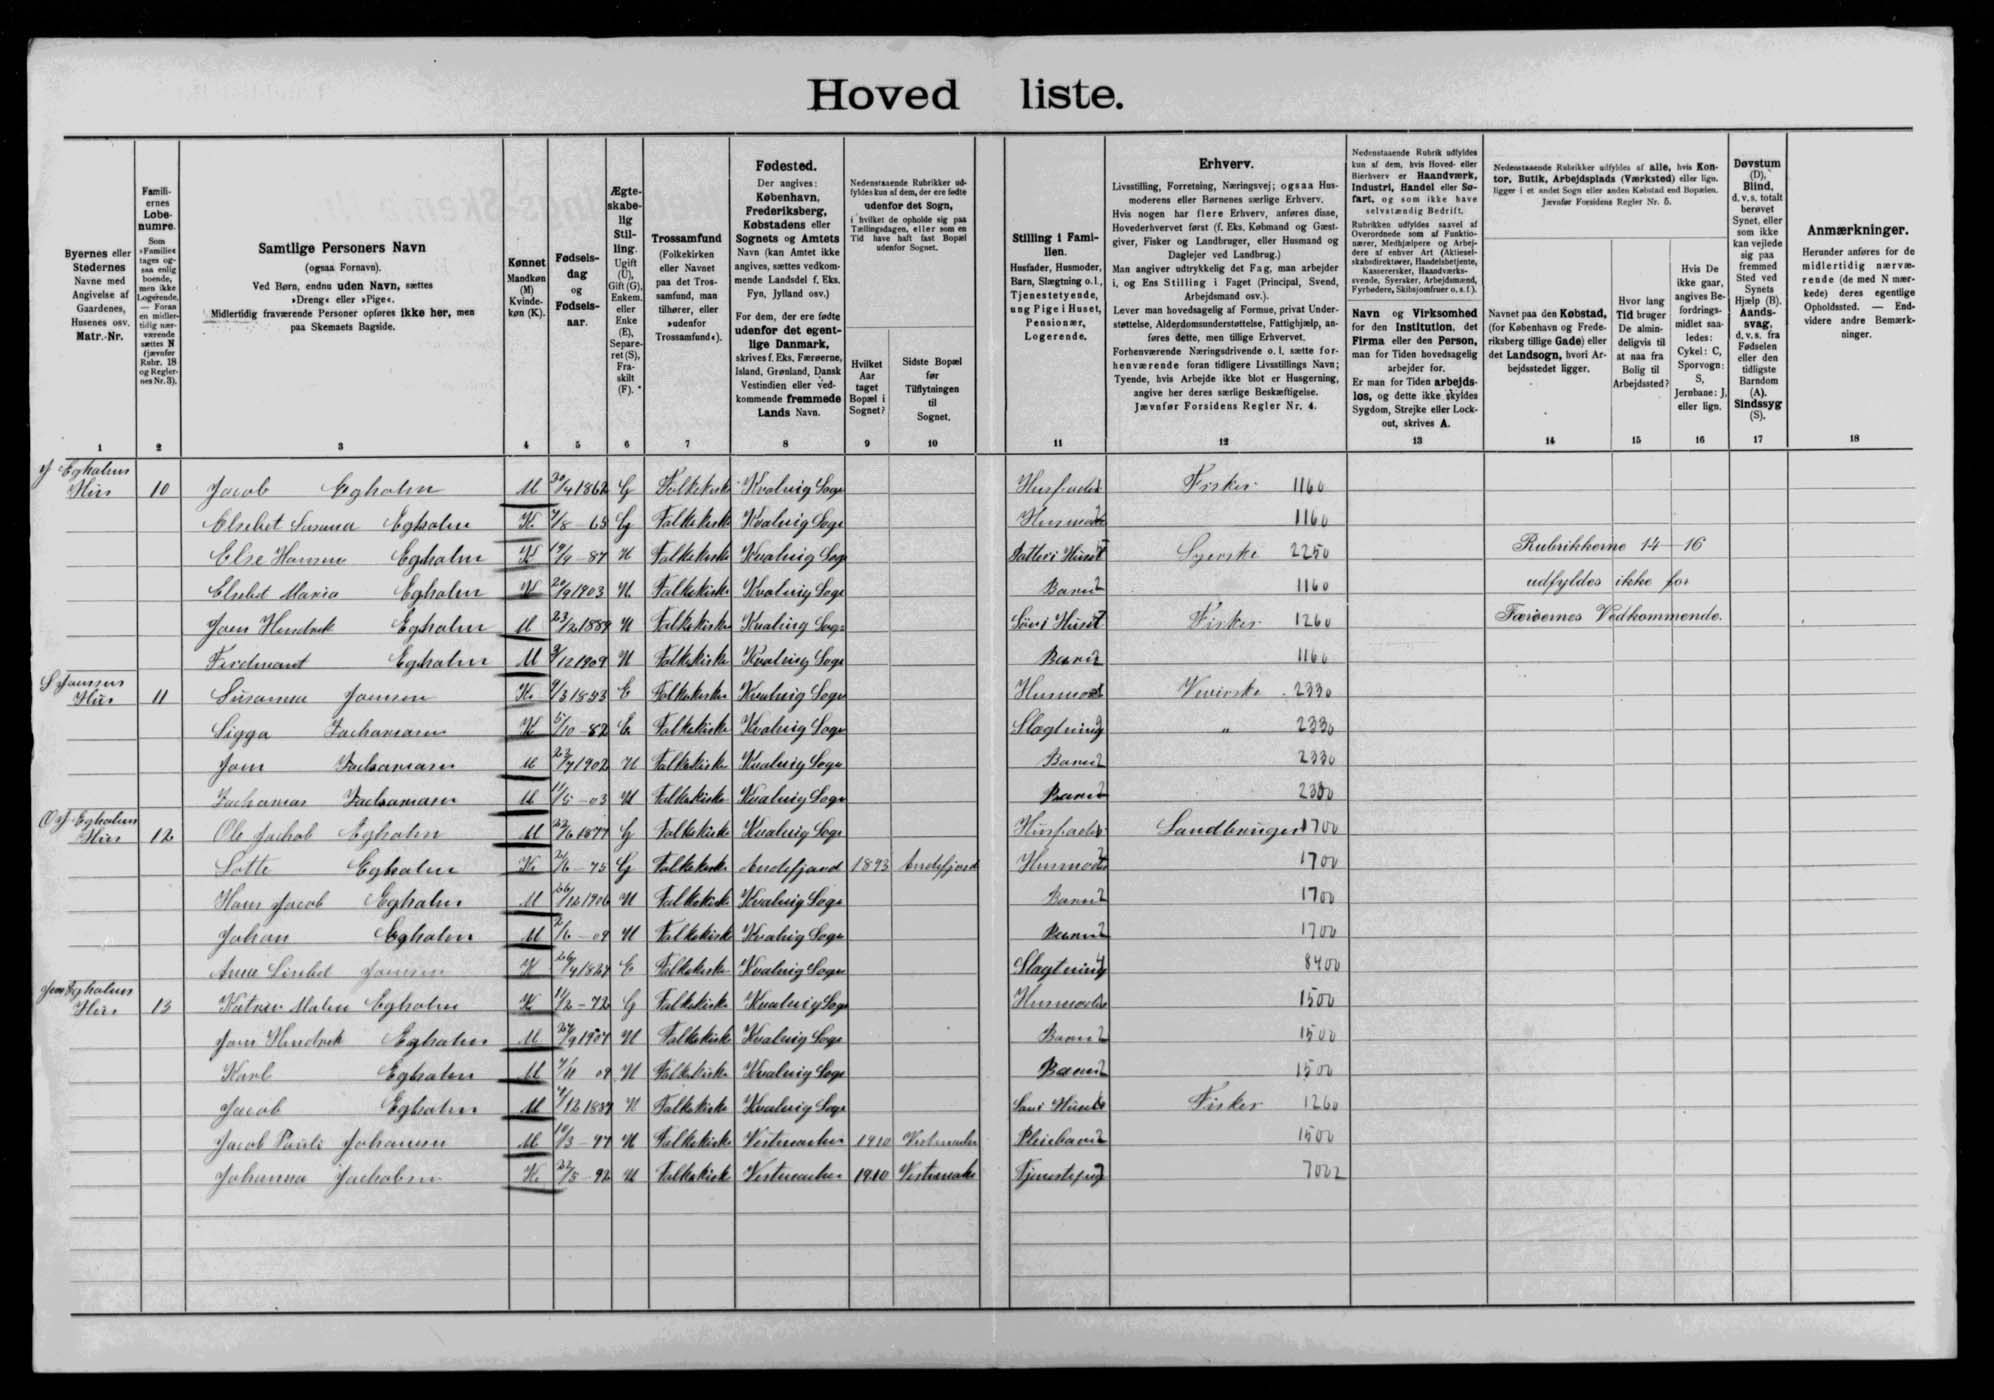 Hoved liste.
Byernes eller Stedernes Navne med Angivelse af Gaardenes, Husenes osv. Matr.-Nr.
Famili-ernes Løbe-numre.
Som »Familie« tages og-saa enlig boende, men ikke Logerende. — Foran en midler-tidig nær-værende sættes N (jævnfør Rubr. 18 og Regler-nes Nr. 3).
Samtlige Personers Navn
(ogsaa Fornavn).
Ved Børn, endnu uden Navn, sættes
»Dreng« eller »Pige«.
Midlertidig fraværende Personer opføres ikke her, men
paa Skemaets Bagside.
Kønnet
Mandkøn (M) Kvinde-køn (K).
Fødsels-dag og Fødsels-aar.
Ægte-skabe-lig Stil-ling.
Ugift (U), Gift (G), Enkem. eller Enke (E), Separe-ret (S), Fra-skilt (F).
Trossamfund
(Folkekirken eller Navnet paa det Tros-samfund, man tilhører, eller »udenfor Trossamfund«).
Fødested.
Der angives:
København, Frederiksberg, Købstadens eller Sognets og Amtets Navn (kan Amtet ikke angives, sættes vedkom-mende Landsdel f. Eks. Fyn, Jylland osv.)
For dem, der ere fødte udenfor det egent-lige Danmark, skrives f. Eks. Færøerne, Island, Grønland, Dansk Vestindien eller ved-kommende fremmede Lands Navn.
Nedenstaaende Rubrikker ud-fyldes kun af dem, der ere fødte udenfor det Sogn, i hvilket de opholde sig paa Tællingsdagen, eller som en Tid have haft fast Bopæl udenfor Sognet.
Hvilket Aar taget Bopæl i Sognet?
Sidste Bopæl før Tilflytningen til Sognet.
Stilling i Fami-lien.
Husfader, Husmoder, Barn, Slægtning o. l., Tjenestetyende, ung Pige i Huset, Pensionær, Logerende.
Erhverv.
Livsstilling, Forretning, Næringsvej; ogsaa Hus-moderens eller Børnenes særlige Erhverv.
Hvis nogen har flere Erhverv, anføres disse, Hovederhvervet først (f. Eks. Købmand og Gæst-giver, Fisker og Landbruger, eller Husmand og Daglejer ved Landbrug.)
Man angiver udtrykkelig det Fag, man arbejder i, og Ens Stilling i Faget (Principal, Svend, Arbejdsmand osv.).
Lever man hovedsagelig af Formue, privat Under-støttelse, Alderdomsunderstøttelse, Fattighjælp, an-føres dette, men tillige Erhvervet.
Forhenværende Næringsdrivende o. l. sætte for-henværende foran tidligere Livsstillings Navn; Tyende, hvis Arbejde ikke blot er Husgerning, angive her deres særlige Beskæftigelse.
Jævnfør Forsidens Regler Nr. 4.
Nedenstaaende Rubrik udfyldes kun af dem, hvis Hoved- eller Bierhverv er Haandværk, Industri, Handel eller Sø-fart, og som ikke have selvstændig Bedrift.
Rubrikken udfyldes saavel af Overordnede som af Funktio-nærer, Medhjælpere og Arbej-dere af enhver Art (Aktiesel-skabsdirektører, Handelsbetjente, Kasserersker, Haandværks-svende, Syersker, Arbejdsmænd, Fyrbødere, Skibsjomfruer o. s. f.).
Navn og Virksomhed for den Institution, det Firma eller den Person, man for Tiden hovedsagelig arbejder for.
Er man for Tiden arbejds-løs, og dette ikke skyldes Sygdom, Strejke eller Lock-out, skrives A.
Nedenstaaende Rubrikker udfyldes af alle, hvis Kon-tor, Butik, Arbejdsplads (Værksted) eller lign. ligger i et andet Sogn eller anden Købstad end Bopælen. Jævnfør Forsidens Regler Nr. 5.
Navnet paa den Købstad, (for København og Frede-riksberg tillige Gade) eller det Landsogn, hvori Ar-bejdsstedet ligger.
Hvor lang Tid bruger De almin-deligvis til at naa fra Bolig til Arbejdssted?
Hvis De ikke gaar, angives Be-fordrings-midlet saa-ledes: Cykel: C, Sporvogn: S, Jernbane: J, eller lign.
Døvstum (D), Blind, d. v. s. totalt berøvet Synet, eller som ikke kan vejlede sig paa fremmed Sted ved Synets Hjælp (B). Aands-svag, d. v. s. fra Fødselen eller den tidligste Barndom (A). Sindssyg (S).
Anmærkninger.
Herunder anføres for de midlertidig nærvæ-rende (de med N mær-kede) deres egentlige Opholdssted. — End-videre andre Bemærk-ninger.
1 2 3 4 5 6 7 8 9 10 11 12 13 14 15 16 17 18
J Egholms
Hus 10 Jacob Egholm M 30/4 1862 G Folkekirke Kvalvig Sogn Husfader Fisker 1160
Elsebet Susanna Egholm K 7/8 - 65 G Folkekirke Kvalvig Sogn Husmoder 1160
Else Hansina Egholm K 19/9 - 87 U Folkekirke Kvalvig Sogn Datter i Huset Syerske 2250 Rubrikkerne 14 - 16
Elsebet Maria Egholm K 20/9 1903 U Folkekirke Kvalvig Sogn Barn 1160 udfyldes ikke for
Joen Hendrik Egholm M 23/2 1889 U Folkekirke Kvalvig Sogn Søn i Huset Fisker 1260 Færøernes Vedkommende.
Ferdinant Egholm M /12 1909 U Folkekirke Kvalvig Sogn Barn 1160
S Joensens
Hus 11 Susanna Joensen K 9/3 1853 E Folkekirke Kvalvig Sogn Husmoder Væverske 2330
Sigga Zachariasen K 5/10 - 82 E Folkekirke Kvalvig Sogn Slægtning " 2330
Joen Zachariasen M 23/7 1902 U Folkekirke Kvalvig Sogn Barn 2330
Zacharias Zachariasen M 11/5 - 03 U Folkekirke Kvalvig Sogn Barn 2330
O J Egholms
Hus 12 Ole Jachob Egholm M 22/6 1877 G Folkekirke Kvalvig Sogn Husfader Landbruger 1700
Lotte Egholm K /6 - 75 G Folkekirke Andefjord 1893 Andefjord Husmoder 1700
Hans Jacob Egholm M 26/12 1906 U Folkekirke Kvalvig Sogn Barn 1700
Johan Egholm M 2/6 - 09 U Folkekirke Kvalvig Sogn Barn 1700
Anna Lisebet Joensen K 26/4 1827 E Folkekirke Kvalvig Sogn Slægtning 8400
Joen Egholms
Hus 13 Katrine Malene Egholm K 11/2 - 72 G Folkekirke Kvalvig Sogn Husmoder 1500
Joen Hendrik Egholm M 27/9 1907 U Folkekirke Kvalvig Sogn Barn 1500
Karl Egholm M /11 09 U Folkekirke Kvalvig Sogn Barn 1500
Jacob Egholm M /12 1889 U Folkekirke Kvalvig Sogn Søn i Huset Fisker 1260
Jacob Pauli Johansen M 10/3 - 97 U Folkekirke Vestmanhn 1910 Vestmanhn Pleiebarn 1500
Johanna Jachobsen K 22/5 - 92 U Folkekirke Vestmanhn 1910 Vestmanhn Tjenestepige 7002